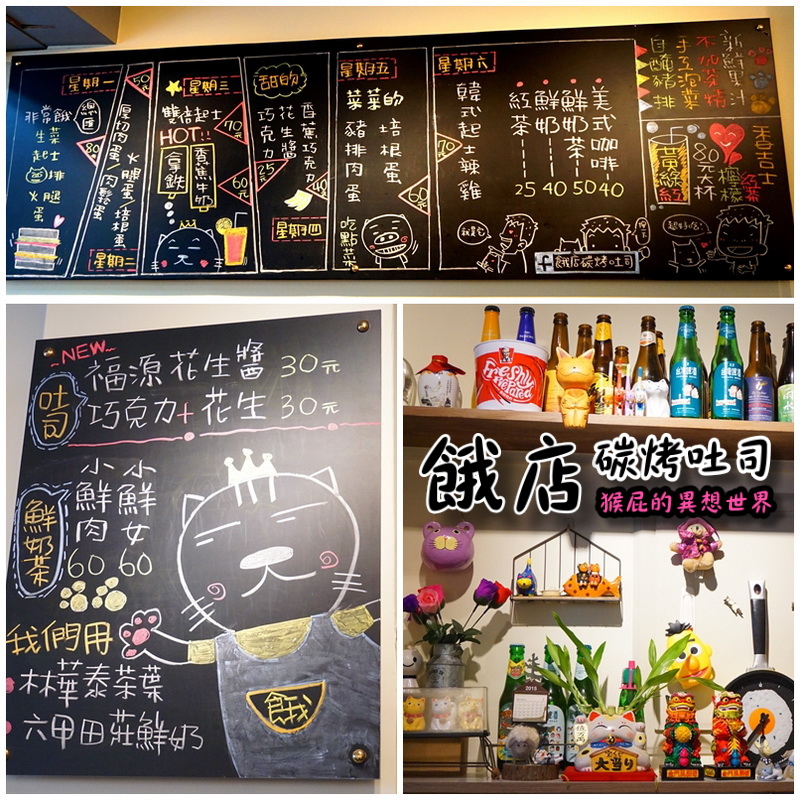 星期一
總匯
非常餓
生菜
起士
豬排
火腿
蛋
80元
50元
厚切肉蛋、肉鬆蛋
火腿蛋、培根蛋
星期二
星期三
雙倍起士
HOT!!
70元
拿鐵
香蕉牛奶
60元
甜的
香蕉巧克力
花生醬
巧克力
25元
40元
星期四
星期五
菜菜的
豬排肉蛋
培根蛋
60元
吃點菜
星期六
韓式起士辣雞
70元
紅茶---25
鮮奶---40
鮮奶茶--50
美式咖啡40
餓店碳烤吐司
新鮮果汁
不加菜精
手工泡菜
自醃豬排
香吉士
檸檬
紅茶
80元/杯
黃綠紅
NEW
吐司
福源花生醬 30元
巧克力+花生 30元
鮮奶茶
小鮮肉 60
小鮮女 60
我們用
林華泰茶葉
六甲田莊鮮奶
餓
KFC
Freshly
Prepared
餓店 碳烤吐司
猴屁的異想世界
2015
大当り